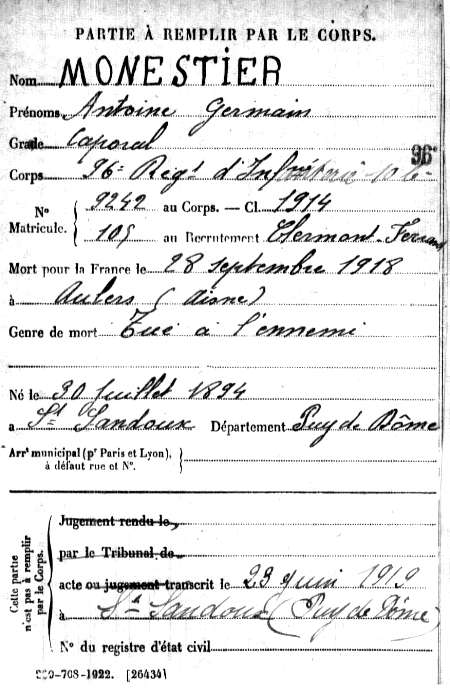 PARTIE À REMPLIR PAR LE CORPS.
Nom MONESTIER
Prénoms Antoine Germain
Grade Caporal
96e
Corps 96e Régt d'Infanterie
N° Matricule. { 9242 au Corps. — Cl. 1914
109 au Recrutement Clermont-Ferrand
Mort pour la France le 28 septembre 1918
à Aubers (Aisne)
Genre de mort Tué à l'ennemi
Né le 30 Juillet 1894
a St Sandoux Département Puy de Dôme
Arrt municipal (pr Paris et Lyon), }
à défaut rue et N°.
Cette partie n'est pas à remplir par le Corps.
Jugement rendu le
par le Tribunal de
acte ou jugement transcrit le 23 Juin 1919
à St Sandoux (Puy de Dôme)
N° du registre d'état civil
-708-1922. [26434]